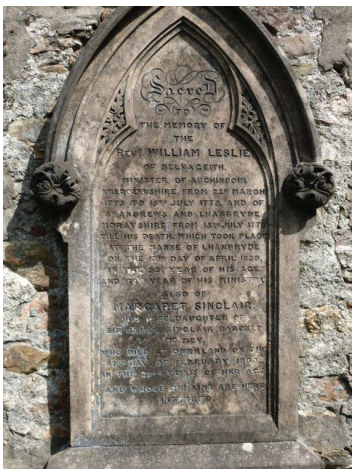 Sacred
TO
THE MEMORY OF
THE
REVD. WILLIAM LESLIE
OF BELNAGEITH
MINISTER OF AUCHINDOIR
ABERDEENSHIRE FROM 23D MARCH
1772 TO 15TH JULY 1773, AND OF
ST ANDREWS AND LHANBRYDE
MORAYSHIRE FROM 15TH JULY 1773
TILL HIS DEATH, WHICH TOOK PLACE
AT THE MANSE OF LHANBRYDE
ON THE DAY OF APRIL 1839,
IN THE YEAR OF HIS AGE,
AND YEAR OF HIS MINISTRY
ALSO OF
MARGARET SINCLAIR
HIS WIFE, DAUGHTER OF
SIR JAMES SINCLAIR BARONET
OF MEY,
WHO DIED AT ON THE
DAY OF FEBRUARY
IN THE YEAR OF HER AGE
AND WHOSE REMAINS ARE HERE
INTERRED.